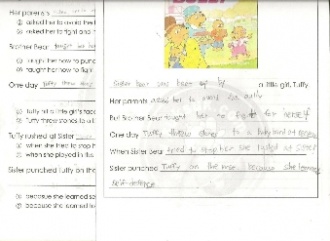 Her parents
asked her to
asked her to fight and
Brother Bear taught her how
taught her how to
taught her how to fig
One day Tuffy threw stones
Tuffy hit a little girl's fac
Tuffy threw stones to a l
Tuffy rushed at Sister
when she tried to stop h
when she played in the
Sister punched Tuffy on the
because she learned so
because she learned se
BULLY
Sister bear was beat up by a little girl, Tuffy
Her parents asked her to avoid the bully
But Brother Bear taught her to for herself
One day Tuffy threw stones to a baby bird at
When Sister Bear tried to stop her she rushed at Sister
Sister punched Tuffy on the nose because she learned
self-defence